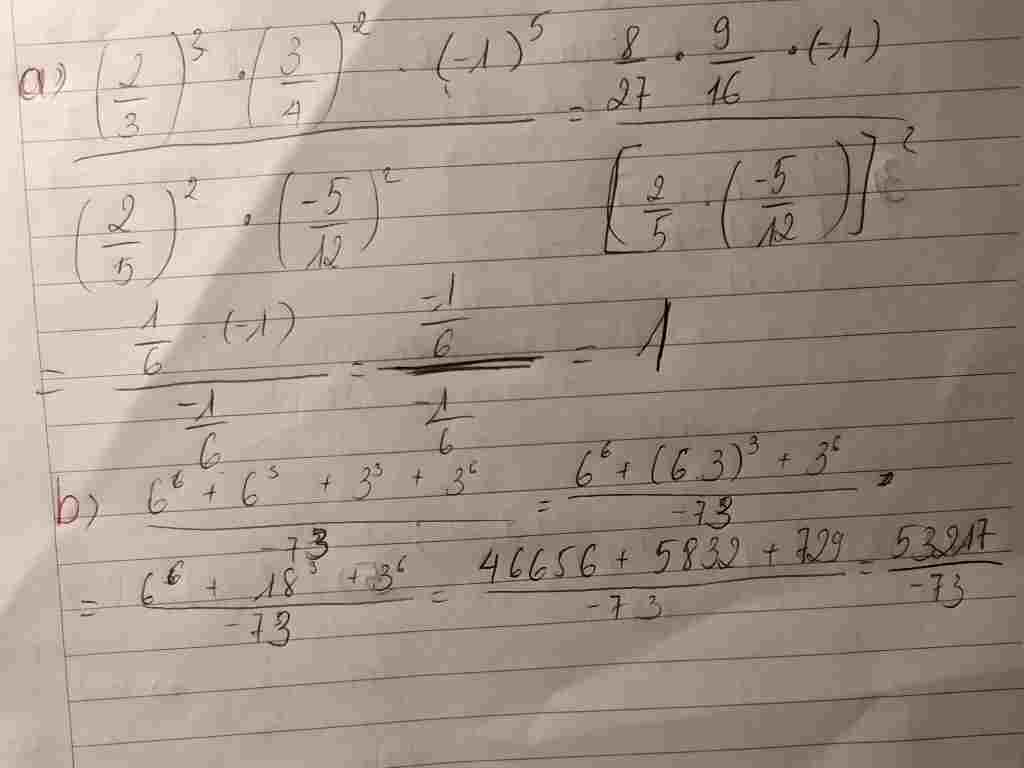 a) (2/3)³ · (3/4)² · (-1)⁵ / (2/5)² · (-5/12)² = 8/27 · 9/16 · (-1) / [2/5 · (-5/12)]²
= 1/6 · (-1) / -1/6 = -1/6 / -1/6 = 1
b) 6⁶ + 6³ + 3³ + 3⁶ / -73 = 6⁶ + (6.3)³ + 3⁶ / -73 =
= 6⁶ + 18³ + 3⁶ / -73 = 46656 + 5832 + 729 / -73 = 53217 / -73